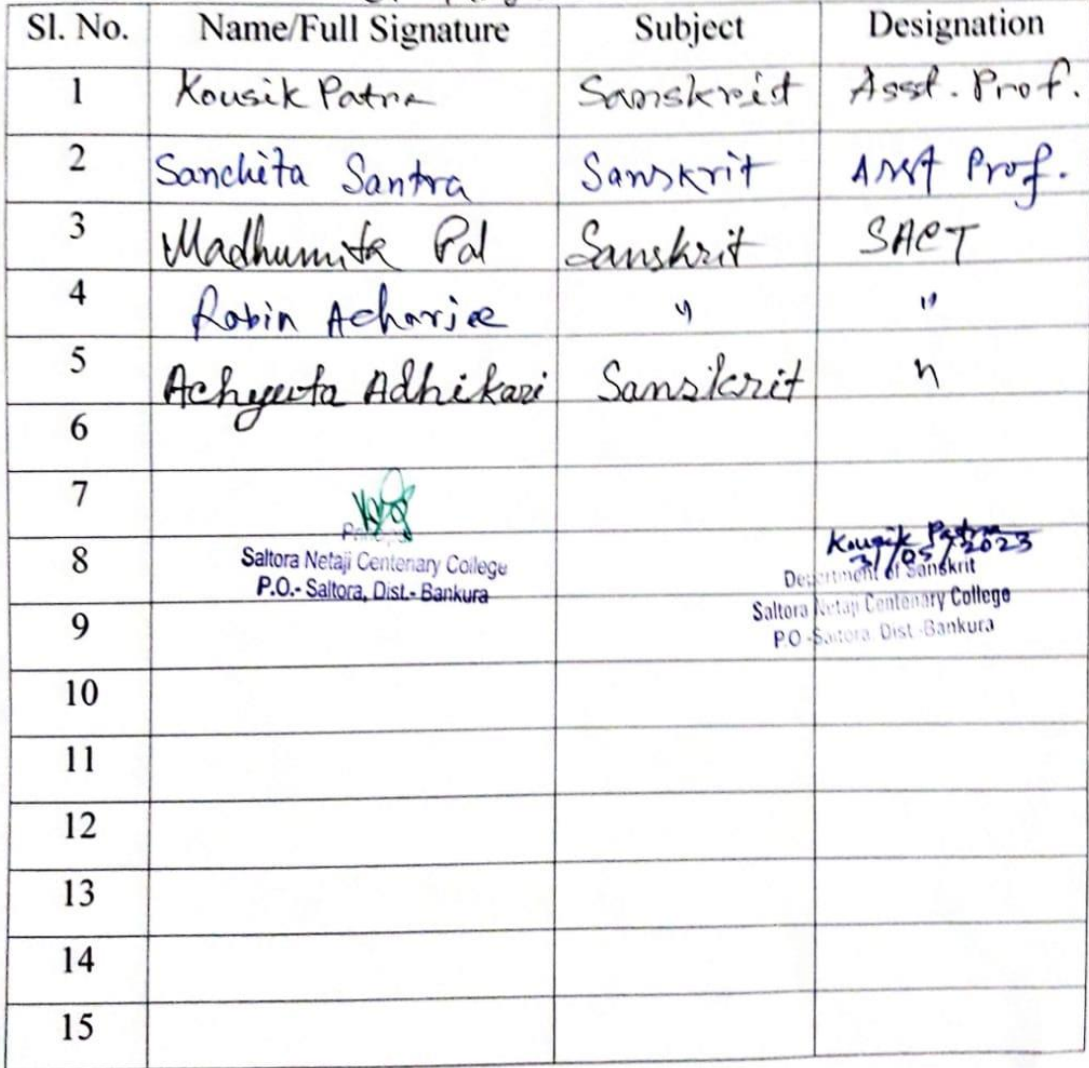 Sl. No. Name/Full Signature Subject Designation
1 Kousik Patra Sanskrit Asst. Prof.
2 Sanchita Santra Sanskrit Asst Prof.
3 Madhumita Pal Sanskrit SACT
4 Robin Acharjee " "
5 Achyuta Adhikari Sanskrit "
6
7
Principal
8 Saltora Netaji Centenary College
P.O.- Saltora, Dist.- Bankura
Kousik Patra
31/05/2023
Department of Sanskrit
Saltora Netaji Centenary College
P.O -Saltora. Dist -Bankura
9
10
11
12
13
14
15